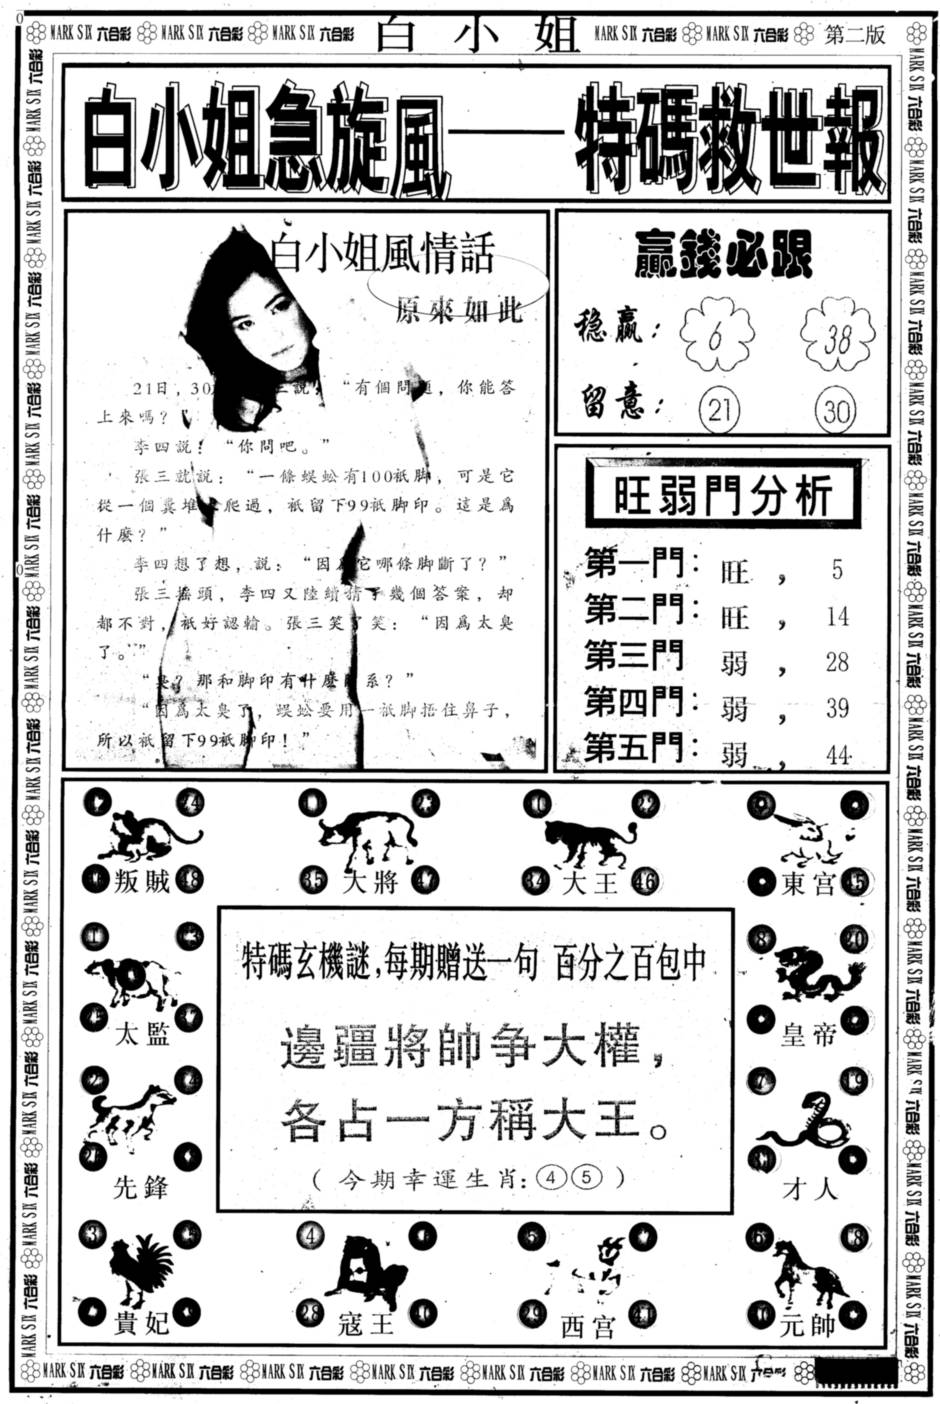 MARK SIX 六合彩 MARK SIX 六合彩 MARK SIX 六合彩 白小姐 MARK SIX 六合彩 MARK SIX 六合彩 第二版
白小姐急旋風——特碼救世報
白小姐風情話
原來如此
21日,30 說:“有個問題,你能答
上來嗎?”
李四說:“你問吧。”
張三就說:“一條蜈蚣有100衹脚,可是它
從一個糞堆 爬過,衹留下99衹脚印。這是爲
什麽?”
李四想了想,說:“因爲它哪條脚斷了?”
張三搖頭,李四又陸續猜了幾個答案,却
都不對,衹好認輸。張三笑了笑:“因爲太臭
了。”
“臭?那和脚印有什麽關系?”
“因爲太臭了,蜈蚣要用一衹脚捂住鼻子,
所以衹留下99衹脚印!”
贏錢必跟
稳赢: 6 38
留意: 21 30
旺弱門分析
第一門: 旺, 5
第二門: 旺, 14
第三門 弱, 28
第四門: 弱, 39
第五門: 弱, 44
24 23 10 22
叛賊 48 35 大將 47 34 大王 46 東宫 45
特碼玄機謎,每期贈送一句 百分之百包中
邊疆將帥争大權,
各占一方稱大王。
(今期幸運生肖:④⑤)
1
太監
8 20
皇帝
2
先鋒
7 19
才人
3
貴妃
4
28 寇王
5
29 西宫 41
6 18
元帥
MARK SIX 六合彩 MARK SIX 六合彩 MARK SIX 六合彩 MARK SIX 六合彩 MARK SIX 六合彩 MARK SIX 六合彩